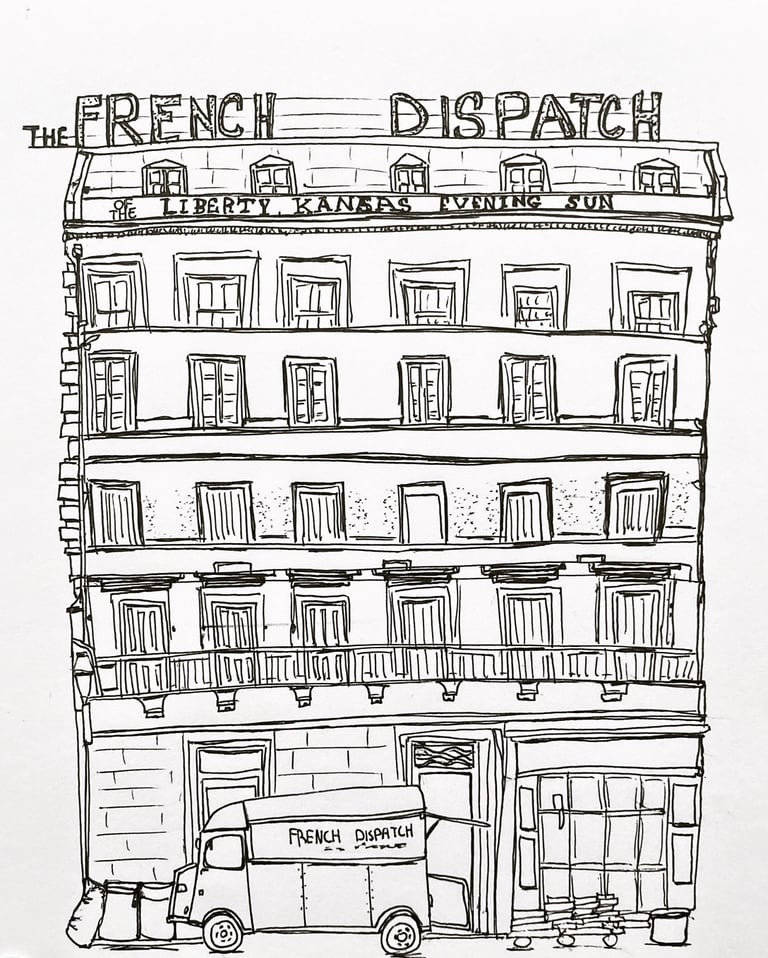 THE FRENCH DISPATCH
OF THE LIBERTY, KANSAS EVENING SUN
FRENCH DISPATCH